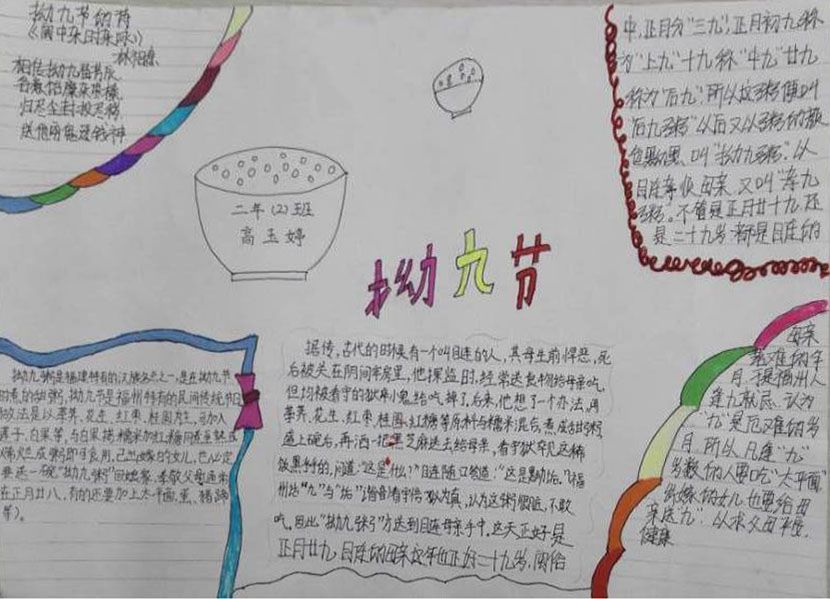 拗九节的诗
《闽中岁时杂咏》
相传拗九备书辰
各煮馅糜杂枣榛
扫尽尘封投尽秽
送他穷鬼迓钱神
二年(2)班
高玉婷
拗九节
据传,古代的时候有一个叫目连的人,其母生前悍恶,死
后被关在阴间牢房里,他探监时,经常送食物给母亲吃
但均被看守的狱卒小鬼给吃掉了,后来,他想了一个办法,用
荸荠,花生,红枣,桂圆,红糖等原料与糯米混后,煮成甜粥
盛上碗后,再洒一把黑芝麻送去给母亲,看守狱卒见这稀
饭黑乎乎的,问道:"这是什么?"目连随口答道:"这是黝垢。"福
州话"九"与"垢"谐音看守信以为真,认为这粥很脏,不敢
吃。因此"拗九粥"方送到目连母亲手中。这天正好是
正月廿九,目连的母亲这年也正好二十九岁,闽俗
中,正月分"三九",正月初九称
为"上九"十九称"中九"廿九
称为"后九",所以这粥便叫
"后九粥"以后又以粥的散
色黝黑、叫"拗九粥"。以
目连孝敬母亲,又叫"孝九
粥"。不管是正月廿十九还
是二十九岁都是目连的
拗九粥是福建特有的汉族名点之一,是在拗九节
时煮的甜粥,拗九节是福州特有的民间传统节日
做法是以荸荠、花生、红枣、桂圆为主,可加入
莲子、白果等,与白
烯火煲成粥即可食用,已出嫁的女儿,也必定
要送一碗"拗九粥"回娘家,孝敬父母通常
在正月廿八,有的还要加上太平面,蛋,猪蹄
等)。
母亲
苦难的年
月,于是福州人
逢九就忌、认为
"九"是厄难的岁
月,所从凡逢"九"
岁数的人要吃"太平面"
出嫁的女儿也要给母
亲送"九",以求父母平安,
健康